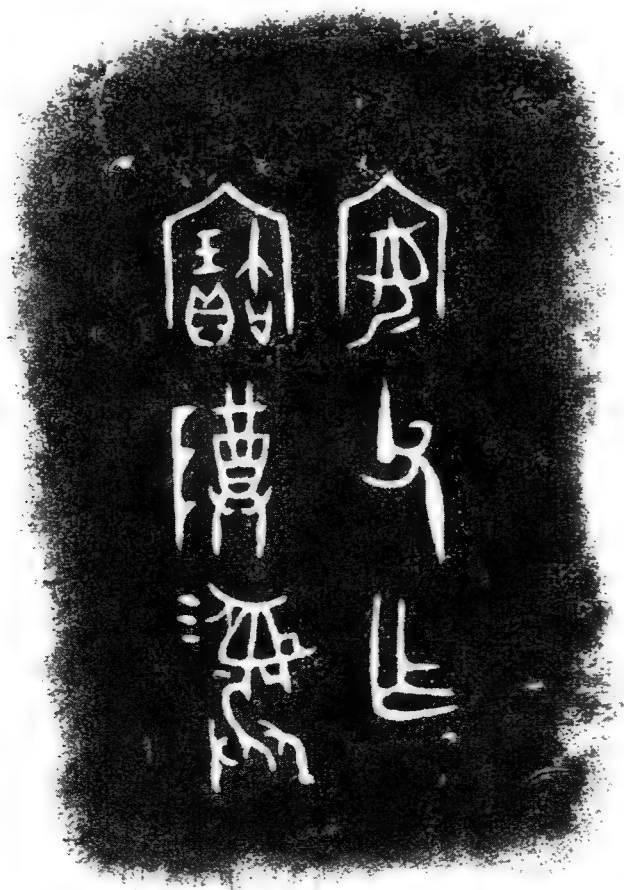 父乍
寶𨺅彝